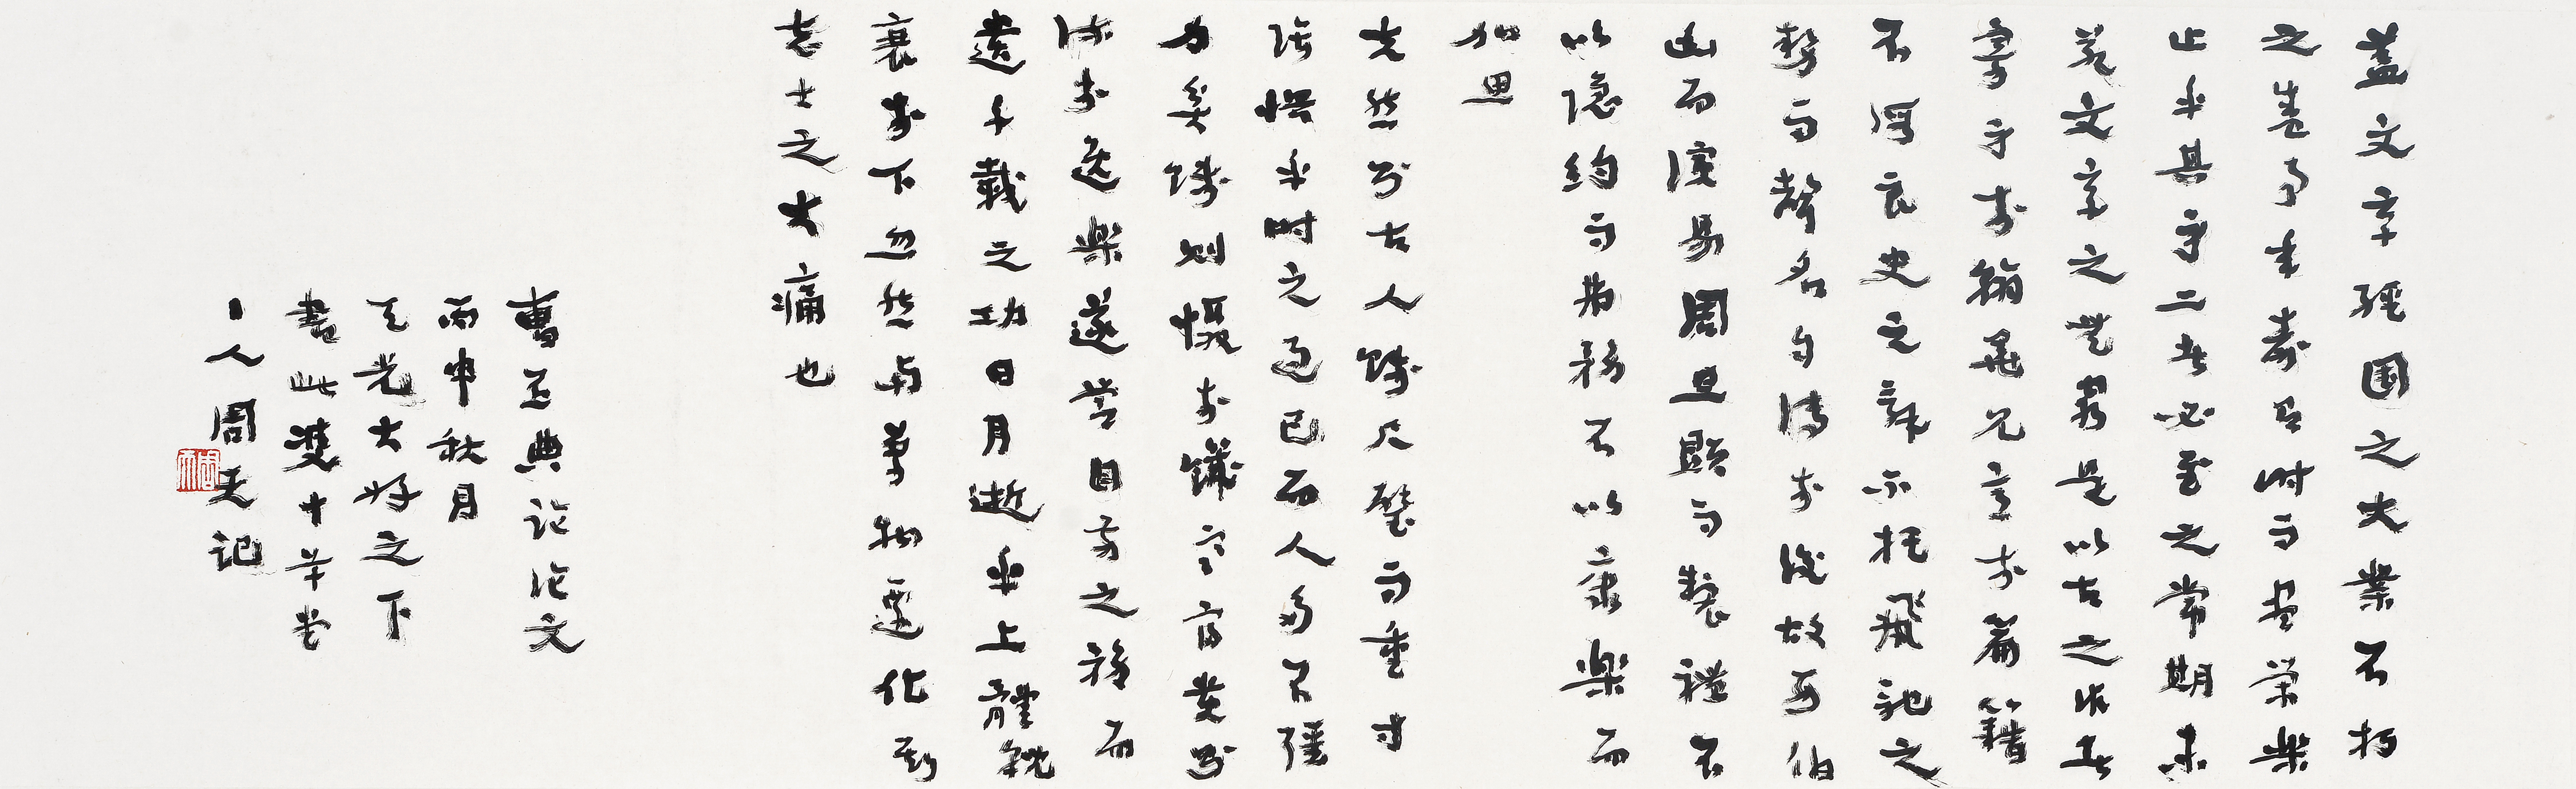 蓋文章經國之大業不朽
之盛事年壽有時而盡榮樂
止乎其身二者必至之常期未
若文章之無窮是以古之作者
寄身於翰墨見意於篇籍
不假良史之辭不托飛馳之
勢而聲名自傳於後故西伯
幽而演易周旦顯而製禮不
以隱約而弗務不以康樂而
加思
夫然則古人賤尺璧而重寸
陰懼乎時之過已而人多不強
力貧賤則懾於饑寒富貴則
流於逸樂遂營目前之務而
遺千載之功日月逝乎上體貌
衰於下忽然與萬物遷化斯
志士之大痛也
曹丕典論論文
丙申秋月
天光大好之下
書此雙十草堂
人周記